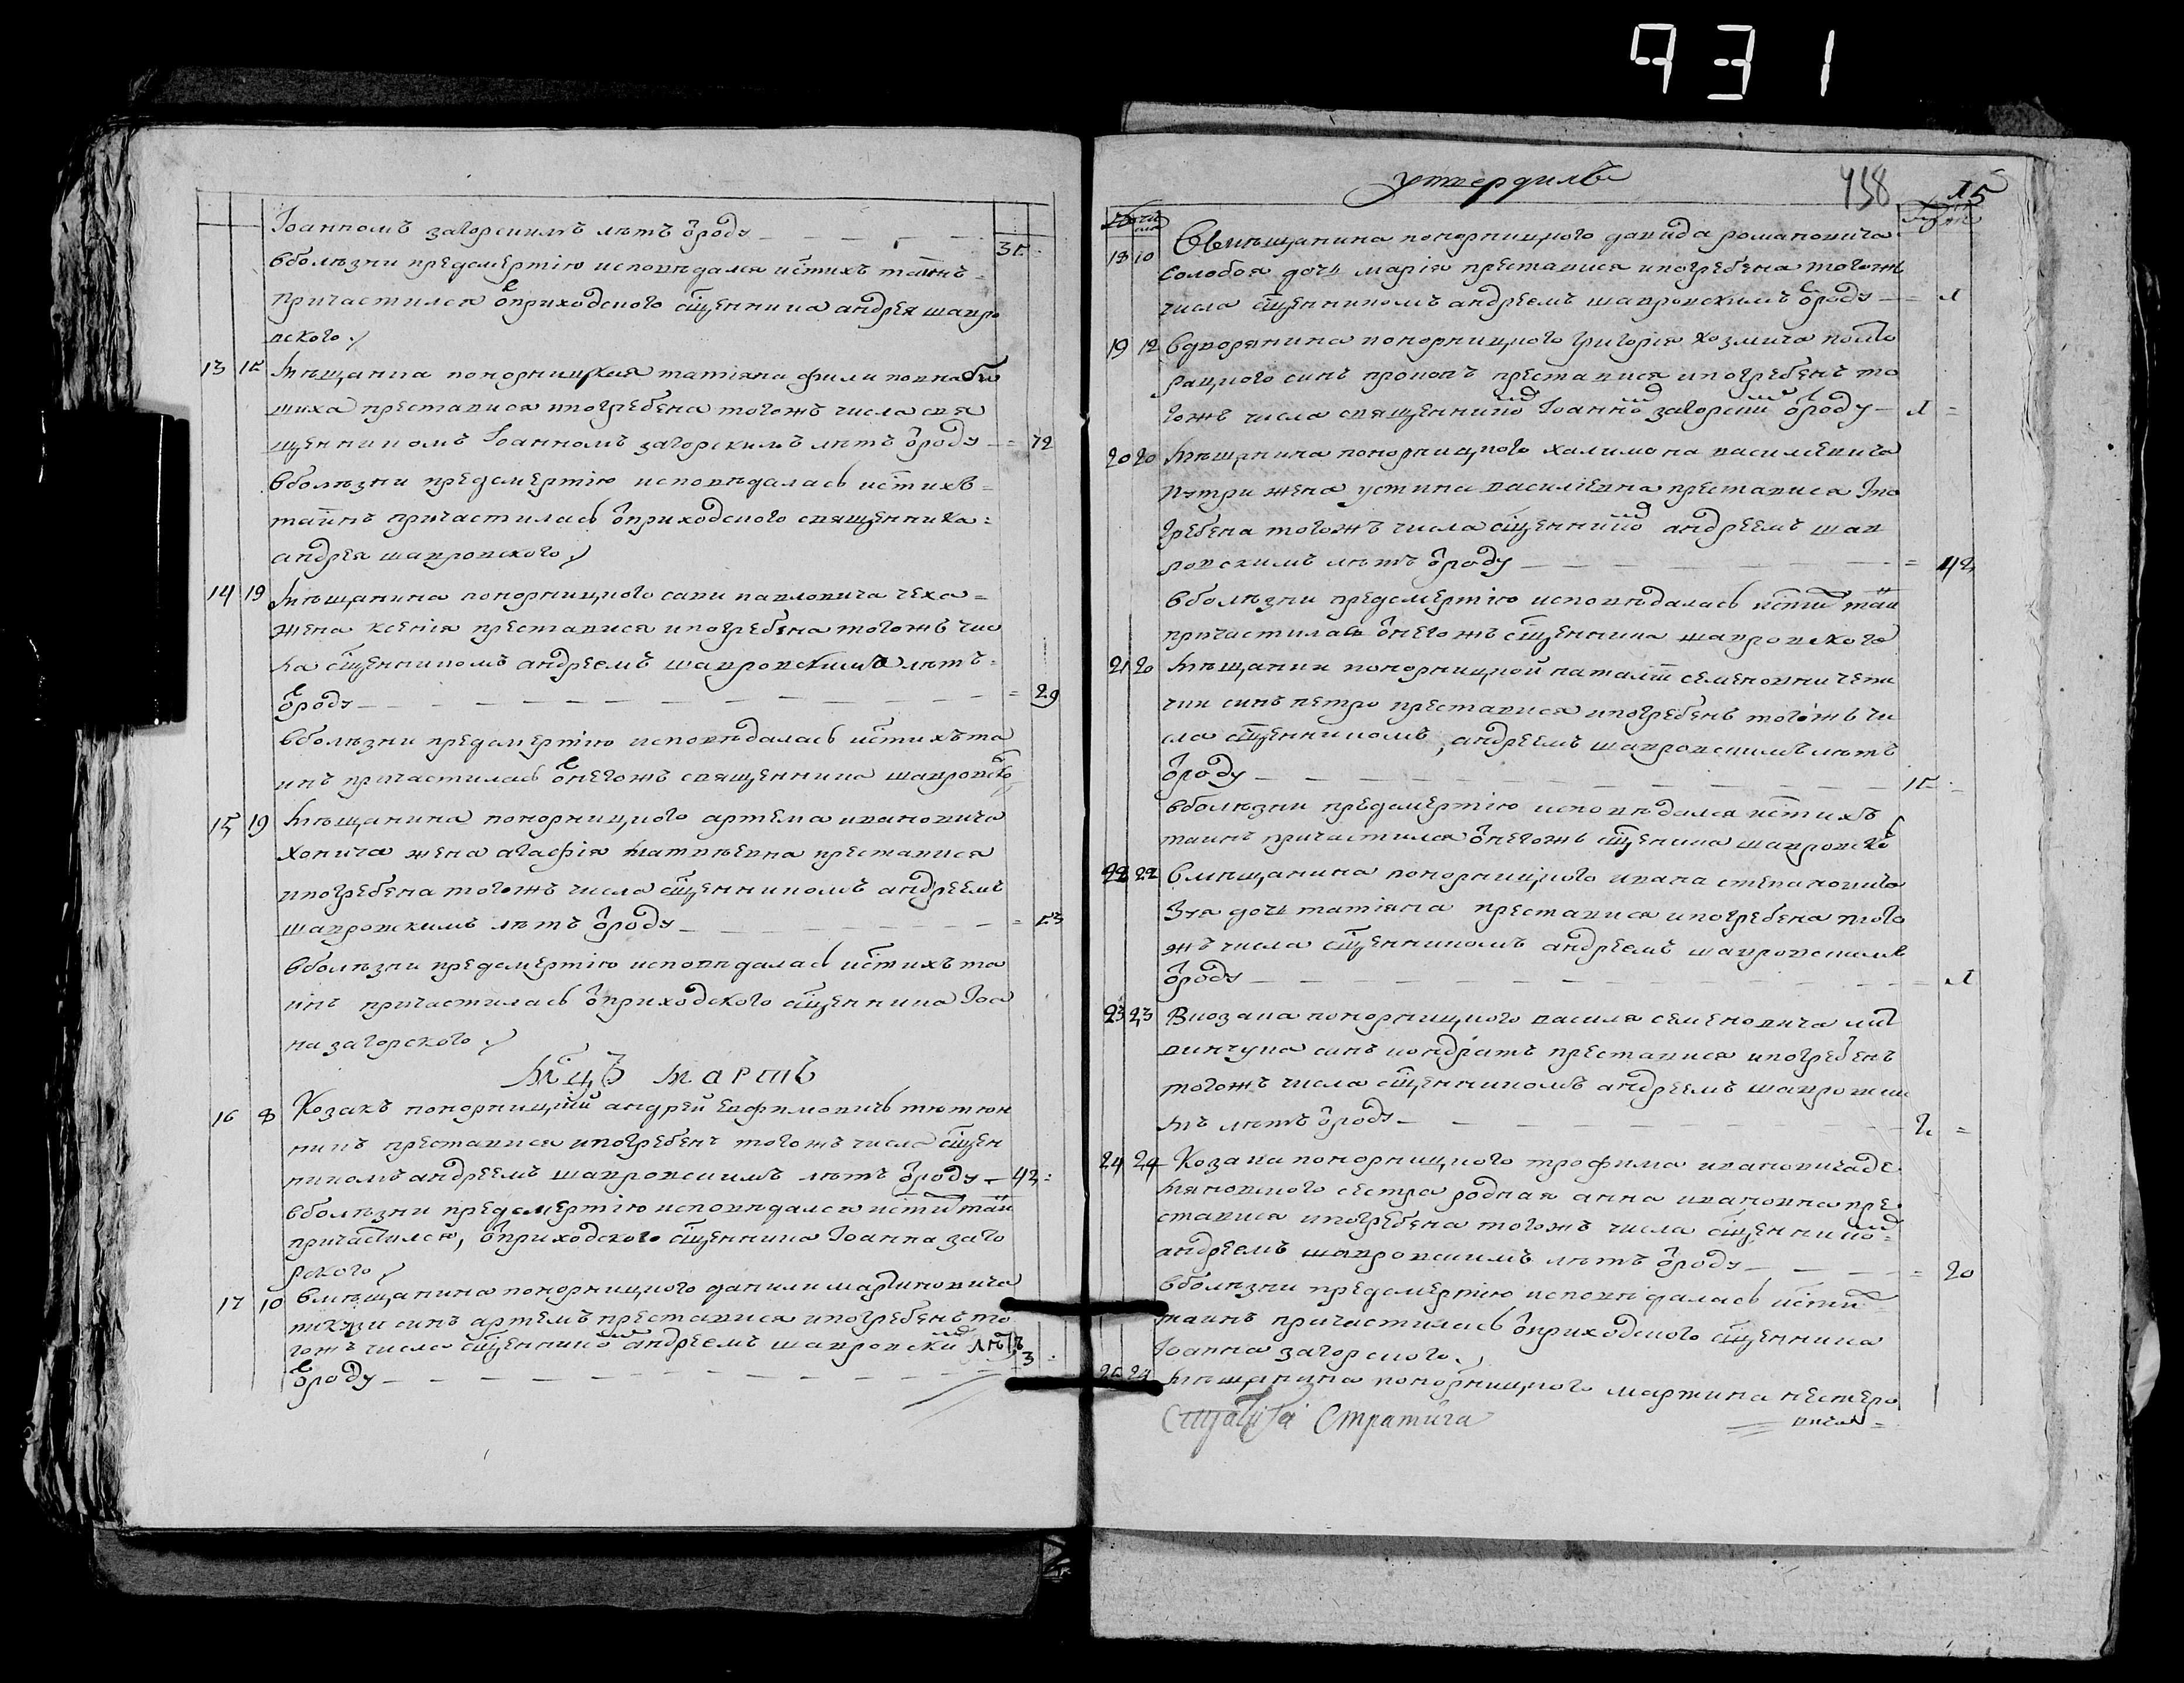 931
Іоанномъ загорскимъ лѣтъ ѿроду 35
вболѣзни предсмертію исповѣдался истихъ таинъ
причастился ѿприходского сщенника андрея шавро
вского
13 15 мѣщанка понорницкая татіяна филиповна
шиха преставися ипогребена тогожъ числа свя
щенникомъ Іоанномъ загорскимъ лѣтъ ѿроду 72
вболѣзни предсмертію исповѣдалась истихъ
таинъ причастилась ѿприходского священника
андрея шавровского
14 19 мѣщанина понорницкого сави павловича чеха
жена ксенія преставися ипогребена тогожъ чис
ла сщенникомъ андреемъ шавровскимъ лѣтъ
ѿроду 29
вболѣзни предсмертію исповѣдалась истихъ та
инъ причастилась ѿнегожъ священника шавровско
15 19 мѣщанина понорницкого артема ивановича
хонича жена агафія матвѣевна преставися
ипогребена тогожъ числа сщенникомъ андреемъ
шавровскимъ лѣтъ ѿроду 53
вболѣзни предсмертію исповѣдалась истихъ та
инъ причастилась ѿприходского сщенника Іоа
на загорского
мцъ мартъ
16 8 Козакъ понорницкій андрей Евфимовичъ тютюн
никъ преставися ипогребенъ тогожъ числа сщен
никомъ андреемъ шавровскимъ лѣтъ ѿроду 42
вболѣзни предсмертію исповѣдался исти таи
причастился, ѿприходского сщенника Іоанна заго
рского
17 10 вмѣщанина понорницкого данили мартиновича
синъ артемъ преставися ипогребенъ то
гожъ числа сщенникомъ андреемъ шавровски лѣтъ
ѿроду 3
утвердилъ
458 15
18 10 Вмѣщанина понорницкого давида романовича
солобоя дочь марія преставися ипогребена тогожъ
числа сщенникомъ андреемъ шавровскимъ ѿроду 1
19 12 вдворянина понорницкого григорія козмича полто
рацкого синъ прокопъ преставися ипогребенъ то
гожъ числа священнико Іоанно загорски ѿроду 1
20 20 мѣщанина понорницкого халимона василевича
петри жена устина василіевна преставися Іпо
гребена тогожъ числа сщеннико андреемъ шав
ровскимъ лѣтъ ѿроду 42
вболѣзни предсмертію исповѣдалась исти таи
причастилась ѿнегожъ сщенника шавровского
21 20 мѣщанки понорницкой наталіи семеновни чепи
чки синъ петро преставися ипогребенъ тогожъ чи
сла сщенникомъ, андреемъ шавровскимъ лѣтъ
ѿроду 15
вболѣзни предсмертію исповѣдался истихъ
таинъ причастился ѿнегожъ сщеника шавровско
22 22 вмѣщанина понорницкого ивана степановича
зуя дочь татіяна преставися ипогребена того
жъ числа сщенникомъ андреемъ шавровскимъ
ѿроду 1
23 23 Вкозака понорницкого василя семеновича лит
винчука синъ кондратъ преставися ипогребенъ
тогожъ числа сщенникомъ андреемъ шавровски
мъ лѣтъ ѿроду 2
24 24 Козака понорницкого трофима ивановича де
мяновского сестра родная анна ивановна пре
ставися ипогребена тогожъ числа сщеннико
андреемъ шавровскимъ лѣтъ ѿроду 20
вболѣзни предсмертію исповѣдалась исти
таинъ причастилась ѿприходского сщенника
Іоанна загорского
25 24 мѣщанина понорницкого мартина нестеро
вича